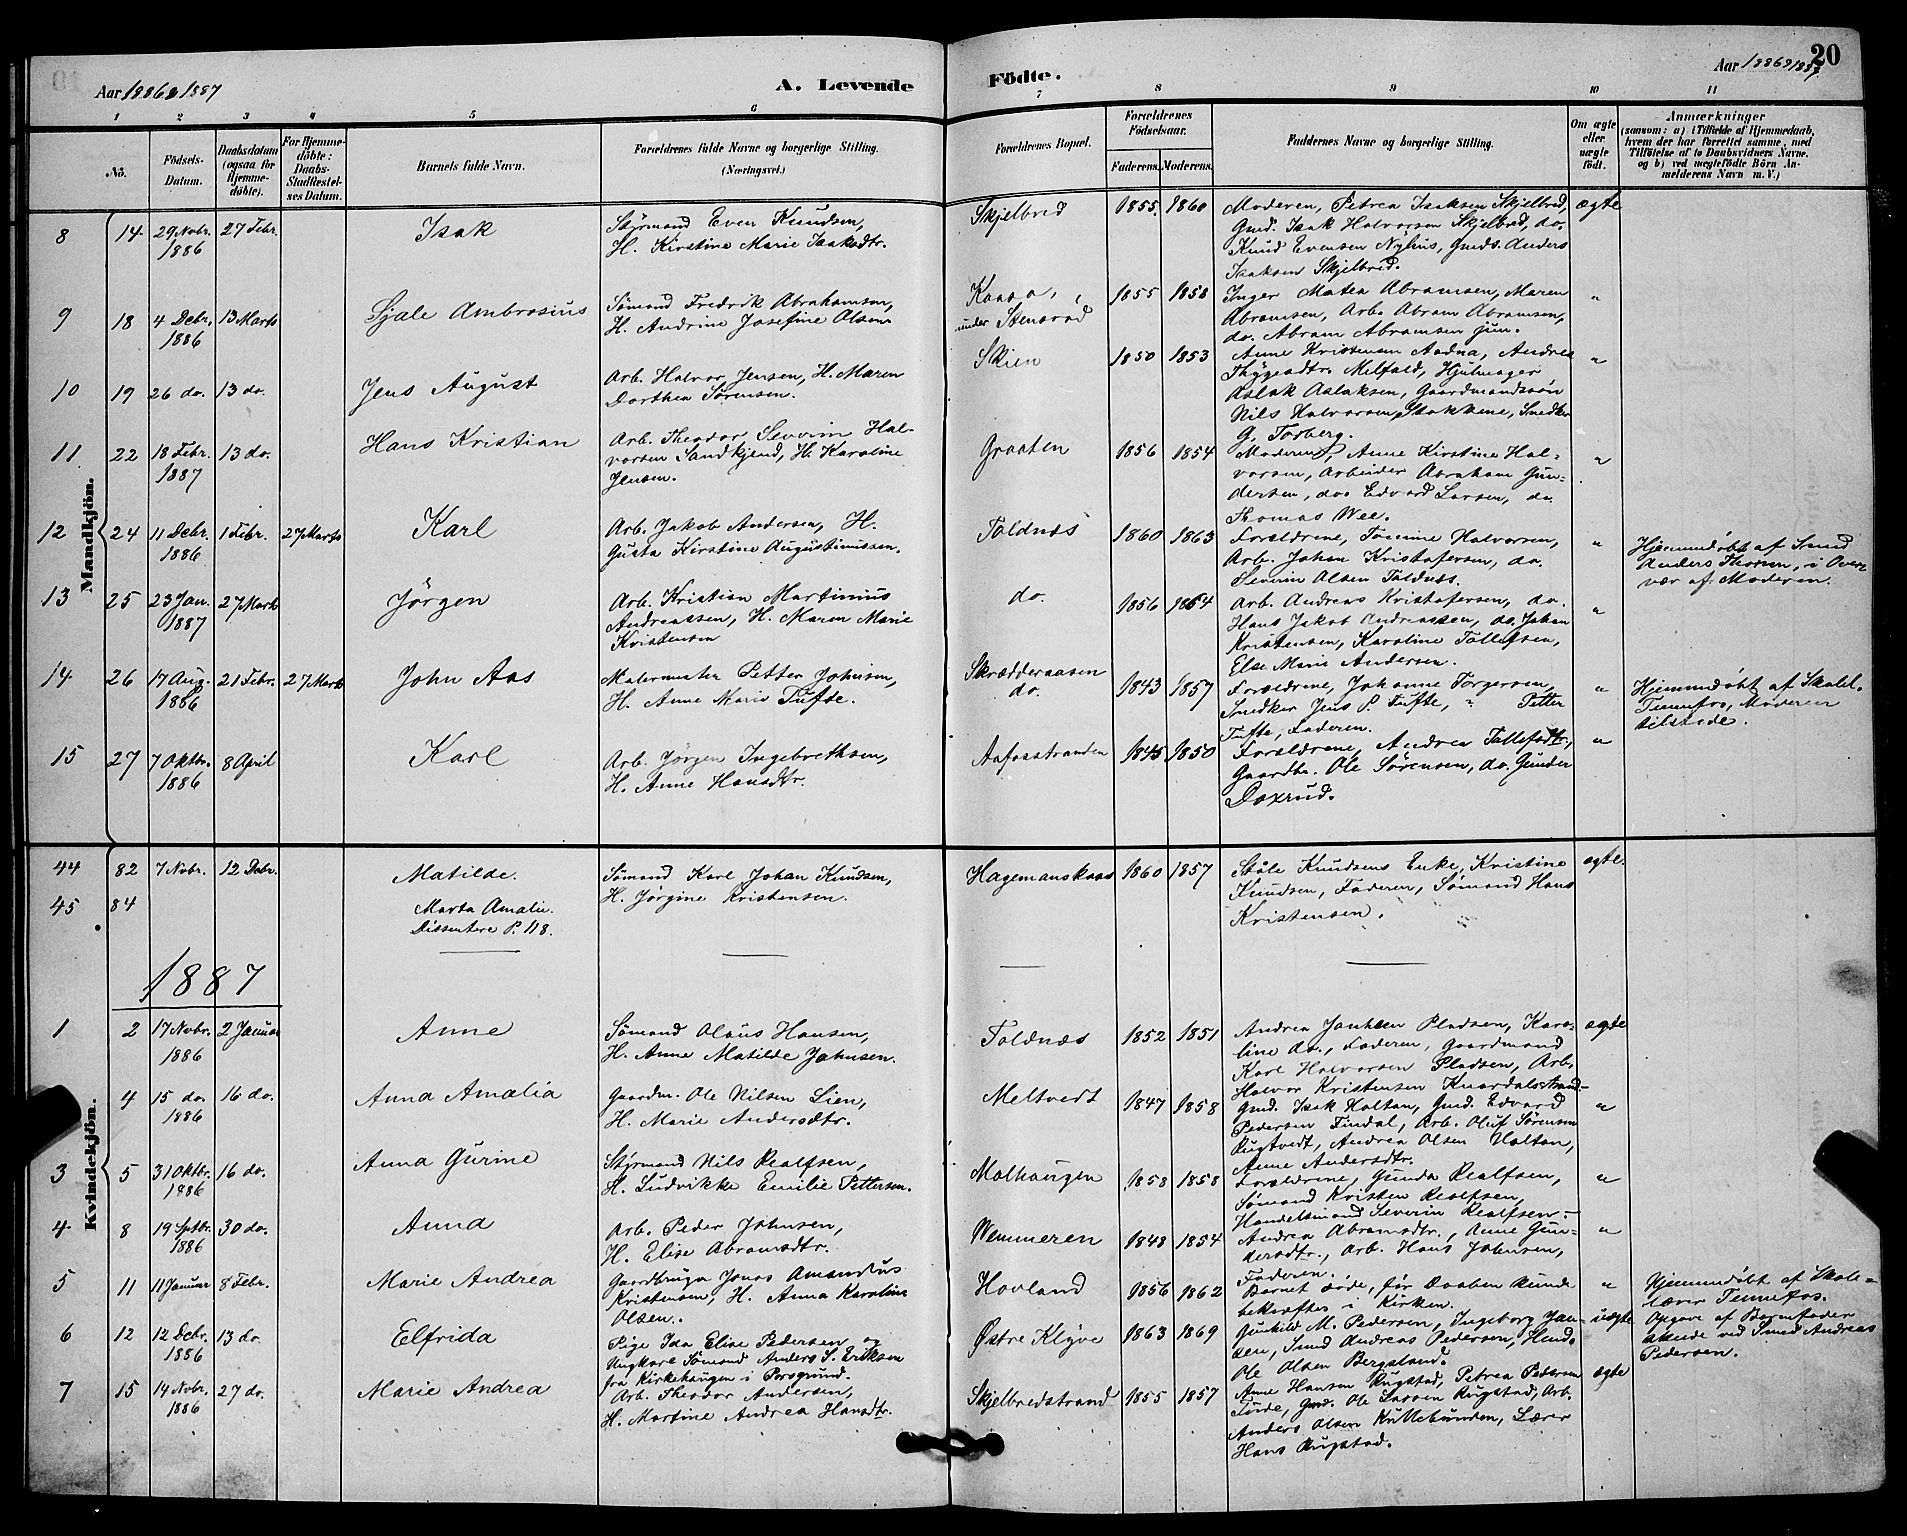 Aar 1886 & 1887
A. Levende
Födte.
Aar 1886 & 1887
20
1 2 3 4 5 6 7 8 9 10 11
No.
Födsels-Datum.
Daabsdatum (ogsaa for Hjemmedöbte).
For Hjemmedöbte: Daabs-Stadfæstelses Datum.
Barnets fulde Navn.
Forældrenes fulde Navne og borgerlige Stilling.
(Næringsvei.)
Forældrenes Bopæl.
Forældrenes Födselsaar.
Faderens. Moderens.
Faddernes Navne og borgerlige Stilling.
Om ægte eller uægte födt.
Anmærkninger
(saasom: a) i Tilfælde af Hjemmedaab, hvem der har forrettet samme, med Tilföielse af to Daabsvidners Navne, og b) ved uægtefödte Börn Anmelderens Navn m. V.)
Mandkjön.
8 14 29 Novbr. 1886 27 Febr. Isak
Styrmand Even Knudsen,
H. Kirstine Marie Isaksdtr.
Skjelbred 1855. 1860
Moderen, Petrea Isaksen Skjelbred,
Gmd. Isak Halvorsen Skjelbred, do.
Knud Evensen Nyhus, Gmds. Anders
Isaksen Skjelbred.
ægte
9 18 4 Debr. 1886 13 Marts Sjale Ambrosius
Sømand Fredrik Abrahamsen,
H. Andrine Josefine Olsen
Kaasa, under Stensrød 1855 1858
Inger Matea Abramsen, Maren
Abramsen, Arb. Abram Abramsen,
do. Abram Abramsen jun.
"
10 19 26 do. 13 do. Jens August
Arb. Halvor Jensen, H. Maren
Dorthea Sørensen.
Skien 1850 1853
Anne Kristensen Aadna, Andrea
Thygesdtr. Melfald, Hjulmager
Aslak Aslaksen, Gaardmandssøn
Nils Halvorsen Stokkene, Snedker
G. Torberg.
"
11 22 18 Febr. 1887 13 do. Hans Kristian
Arb. Theodor Severin Hal-
vorsen Sandkjend, H. Karoline
Jensen.
Graaten 1856 1854
Moderen, Anne Kirstine Hal-
vorsen, Arbeider Abraham Gun-
dersen, do. Edvard Larsen, do.
Thomas Wee.
"
12 24 11 Debr. 1886 1 Febr. 27 Marts Karl
Arb. Jakob Andersen, H.
Gusta Kirstine Augustinussen.
Toldnæs 1860 1863
Forældrene, Tomine Halvorsen,
Arb. Johan Kristofersen, do.
Severin Olsen Toldnæs.
"
Hjemmedøbt af Smed
Anders Thorsen, i Over-
vær af Moderen.
13 25 23 Jan. 1887 27 Marts Jörgen
Arb. Kristian Martinius
Andreassen, H. Maren Marie
Kristensen
do. 1856 1864
Arb. Andreas Kristofersen, do.
Hans Jakob Andreassen, do. Johan
Kristensen, Karoline Tollefsen,
Else Marie Andersen.
"
14 26 17 Aug. 1886 21 Febr. 27 Marts John Aas
Malermester Petter Johnsen,
H. Anne Marie Tufte.
Skrædderaasen do. 1843 1857
Forældrene, Johanne Torgersen,
Snedker Jens P. Tufte, " Petter
Tufte, Faderen.
"
Hjemmedøbt af Skolel.
Tennefos, Moderen
tilstede.
15 27 7 Oktbr. 1886 8 April Karl
Arb. Jørgen Ingebrethsen,
H. Anne Hansdtr.
Aafosstranden 1845 1850
Forældrene, Andrea Tollefsdtr.,
Gaardbr. Ole Sørensen, do. Gunder
Doxrud.
"
Kvindekjön.
44 82 7 Novbr. 12 Debr. Matilde.
Sømand Karl Johan Knudsen,
H. Jørgine Kristensen.
Hagemanskaas 1860 1857
Ståle Knudsens Enke, Kristine
Knudsen, Faderen, Sømand Hans
Kristensen.
ægte.
45 84 Marta Amalie.
Dissentere P. 118.
1887
1 2 17 Novbr. 1886 2 Januar Anne
Sømand Olaus Hansen,
H. Anne Matilde Johnsen.
Toldnæs 1852 1851
Andrea Pladsen, Karo-
line do., Faderen, Gaardmand
Karl Halvorsen Pladsen, Arb.
Halvor Kristensen Knardalsstrand-
ægte
4 15 do. 1886 16 do. Anna Amalia
Gaardm. Ole Nilsen Lien,
H. Marie Andersdtr.
Meltvedt 1847 1858
Gmd. Isak Holtan, Gmd. Edvard
Pedersen Findal, Arb. Oluf Sørensen
Rugtvedt, Andrea Olsen Holtan,
Anne Andersdtr.
"
3 5 31 Oktbr. 1886 16 do. Anna Gurine
Styrmand Nils Realfsen,
H. Ludvikke Emilie Pettersen.
Molhaugen 1858 1858
Forældrene, Gunda Realfsen,
Sømand Kristen Realfsen,
Handelsmand Severin Realfsen.
"
4 8 19 Septbr. 1886 30 do. Anna
Arb. Peder Johnsen,
H. Elise Abramsdtr.
Wemmeren 1848 1854
Andrea Abramsdtr., Anne Gun-
dersdtr., Arb. Hans Johnsen,
Faderen.
"
5 11 11 Januar 8 Febr. Marie Andrea
Gaardbruger Jonas Amandus
Kristensen, H. Anna Karoline
Olsen.
Hovland 1856 1862
Barnet døde, før Daaben kunde
bekræftes i Kirken.
"
Hjemmedøbt af Skole-
lærer Tennefos.
6 12 12 Debr. 1886 13 do. Elfrida
Pige Ida Elise Pedersen og
Ungkarl Sømand Anders S. Eriksen
fra Kirkehaugen i Porsgrund.
Østre Klyve 1863 1869
Gunhild M. Pedersen, Ingeborg Jan-
sen, Smed Andreas Pedersen,
Ole Olsen Bergsland.
uægte
Opgave af Barnefader
skede ved Smed Andreas
Pedersen.
7 15 14 Novbr. 1886 27 do. Marie Andrea
Arb. Theodor Andersen,
H. Martine Andrea Hansdtr.
Skjelbredstrand 1855 1857
Anne Hansen Rugstad, Petrea Pedersen
Gmd. Ole Larsen Rugstad, Arb.
Anders Olsen Kuttebunden, Lærer
Hans Rugstad.
ægte